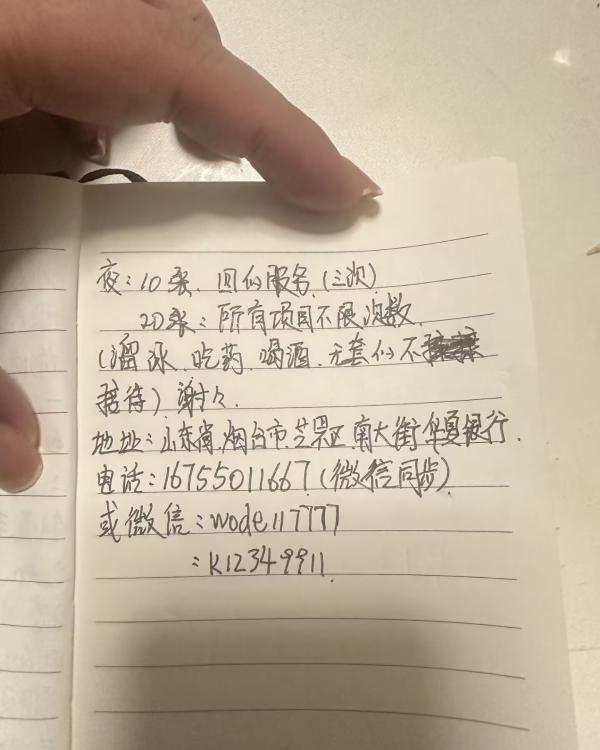 夜：10张、回似服务、(三次)
20张：所有项目不限次数、
(溜冰、吃药、喝酒、无套似不
接待)谢谢、
地址：山东省、烟台市、芝罘区、南大街华夏银行、
电话：16755011667(微信同步)
或微信：wode117777
：k12349911、